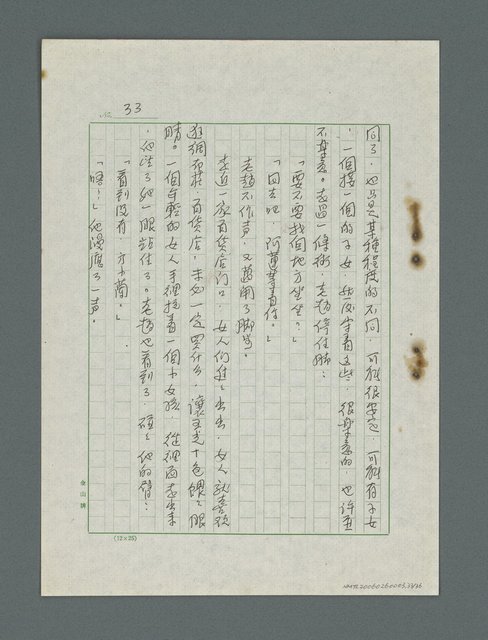 No. 33
同了，也只是某種程度的不同，可能很安定，可能有子女
，一個接一個的子女，她便守着這些，很幸幸的，也許並
不幸幸。走過一條街，老趙停住腳：
「要不要找個地方坐坐？」
「回去吧，阿蓮等着你。」
老趙不作聲，又邁開了腳步。
走近一家百貨店門口，女人們進進出出，女人就喜歡
逛綢布莊，百貨店，未必一定買什麼，讓五光十色餵餵眼
睛。一個年輕的女人手裡抱着一個小女孩，從裡面走出來
，他望了她一眼，站住了。老趙也看到了，碰碰他的臂：
「看到沒有，方小蘭。」
「唔！」他漫應了一聲。
金山牌
(12×25)